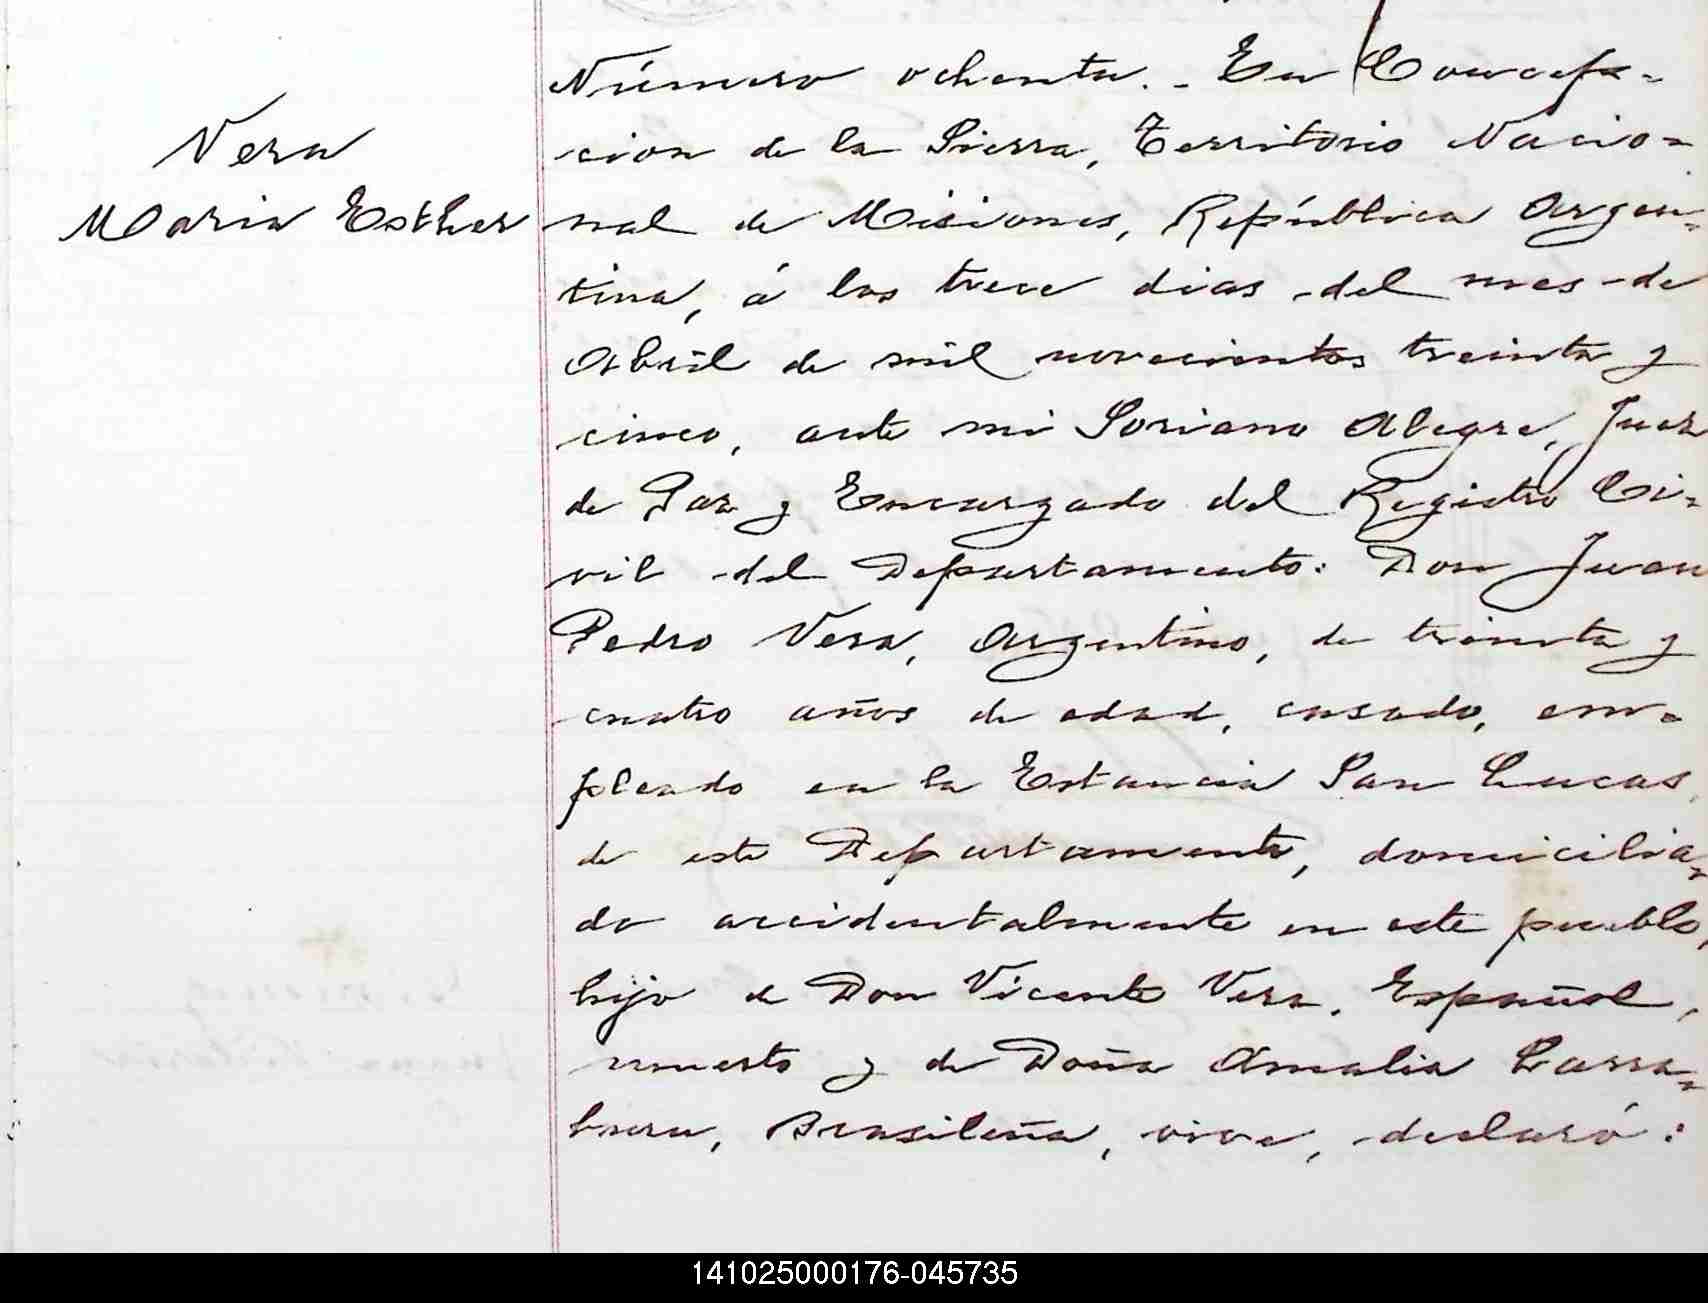 Vera
Maria Esther
Número ochenta. - En Concep-
cion de la Sierra, Territorio Nacio-
nal de Misiones, República Argen-
tina, á los trece dias del mes de
Abril de mil novecientos treinta y
cinco, ante mi Soriano Alegre, Juez
de Paz y Encargado del Registro Ci-
vil del Departamento: Don Juan
Pedro Vera, Argentino, de treinta y
cuatro años de edad, casado, em-
pleado en la Estancia San Lucas,
de este Departamento, domicilia-
do accidentalmente en este pueblo,
hijo de Don Vicente Vera, Español,
muerto y de Doña Amalia Larra-
bura, Brasileña, viva, declaró:
141025000176-045735